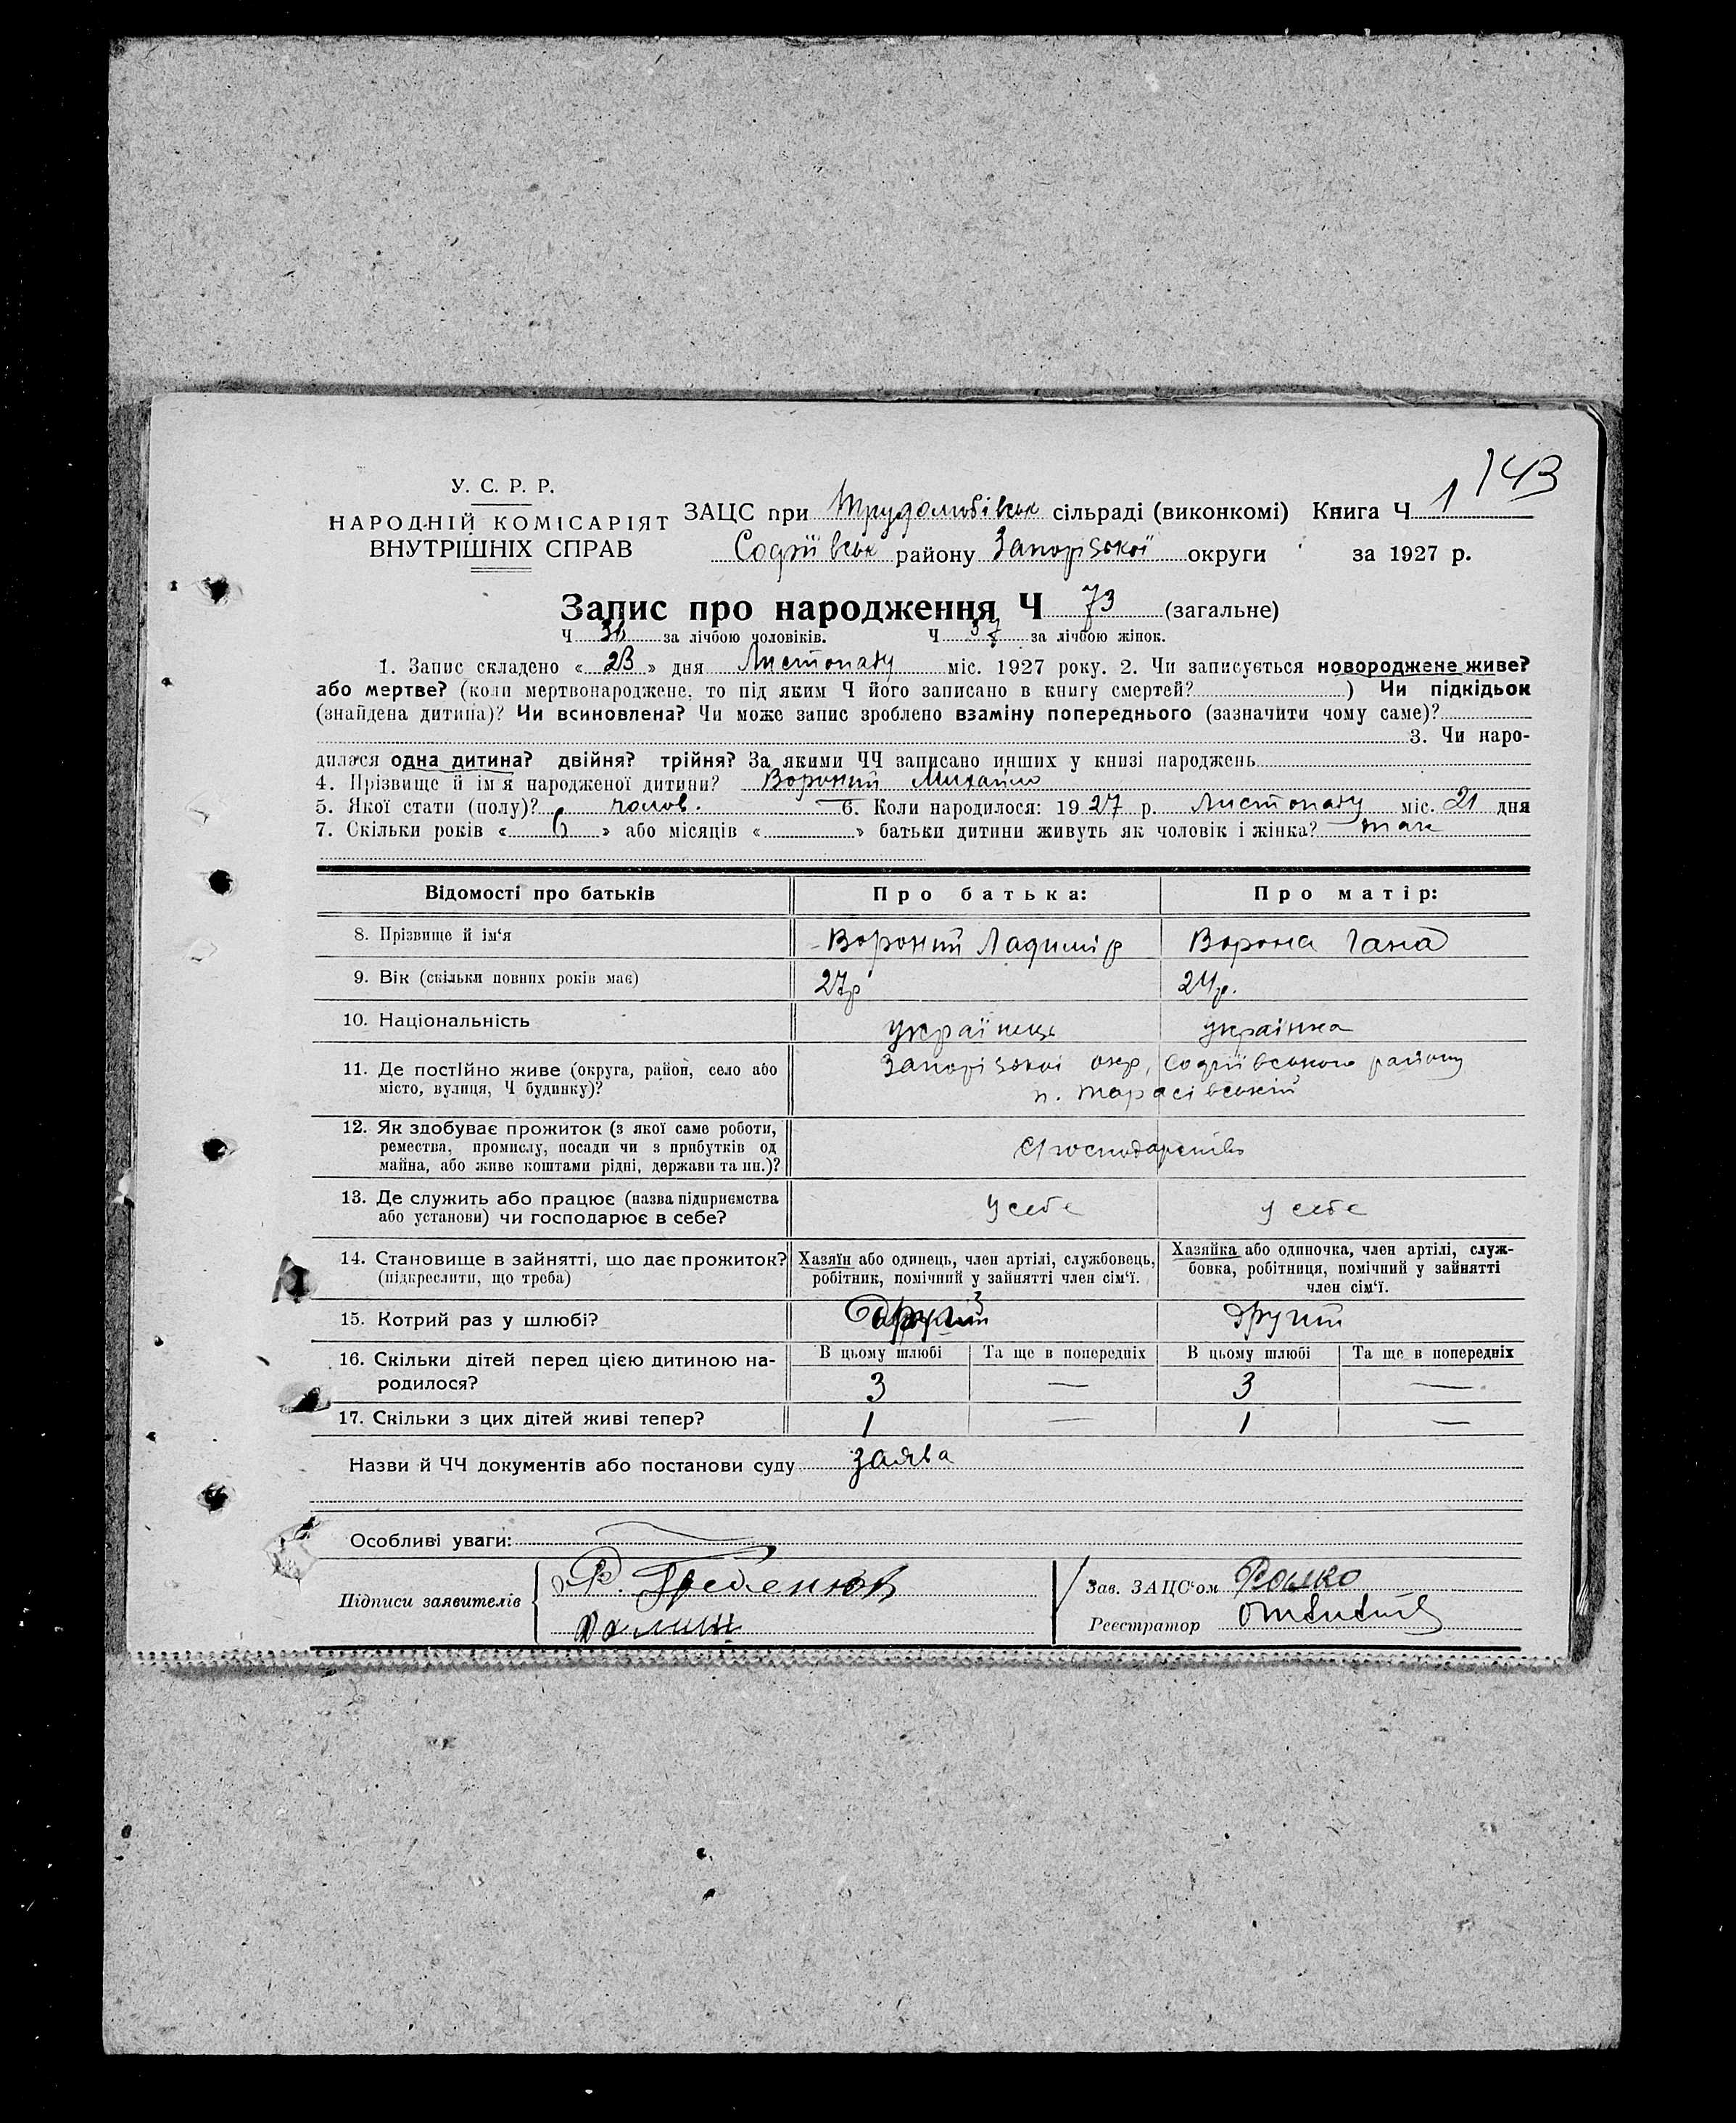 143
У. С. Р. Р.
НАРОДНІЙ КОМІСАРІЯТ
ВНУТРІШНІХ СПРАВ
ЗАЦС при Трудолюбівськ сільраді (виконкомі) Книга Ч 1
Софіївськ району Запорізької округи за 1927 р.
Запис про народження Ч 73 (загальне)
Ч за лічбою чоловіків. Ч 37 за лічбою жінок.
1. Запис складено « 23 » дня Листопаду міс. 1927 року. 2. Чи записується новороджене живе?
або мертве? (коли мертвонароджене, то під яким Ч його записано в книгу смертей? ) Чи підкідьок
(знайдена дитина)? Чи всиновлена? Чи може запис зроблено взаміну попереднього (зазначити чому саме)?
3. Чи наро-
дилася одна дитина? двійня? трійня? За якими ЧЧ записано инших у книзі народжень
4. Прізвище й ім'я народженої дитини? Вороний Михайло
5. Якої стати (полу)? чолов. 6. Коли народилося: 1927 р. Листопаду міс. 21 дня
7. Скільки років « 6 » або місяців « » батьки дитини живуть як чоловік і жінка? так
Відомості про батьків Про батька: Про матір:
8. Прізвище й ім'я Вороний Ладимір Ворона Гана
9. Вік (скільки повних років має) 27р 24р.
10. Національність українець українка
11. Де постійно живе (округа, район, село або Запорізької окр, Софіївського району
місто, вулиця, Ч будинку)? п. Тарасівський
12. Як здобуває прожиток (з якої саме роботи,
ремества, промислу, посади чи з прибутків од
майна, або живе коштами рідні, держави та ин.)?
13. Де служить або працює (назва підприємства у себе у себе
або установи) чи господарює в себе?
14. Становище в зайнятті, що дає прожиток? Хазяїн або одинець, член артілі, службовець, Хазяйка або одиночка, член артілі, служ-
(підкреслити, що треба) робітник, помічний у зайнятті член сім'ї. бовка, робітниця, помічний у зайнятті
член сім'ї.
15. Котрий раз у шлюбі? другий другий
16. Скільки дітей перед цією дитиною на- В цьому шлюбі Та ще в попередніх В цьому шлюбі Та ще в попередніх
родилося? 3 — 3 —
17. Скільки з цих дітей живі тепер? 1 — 1 —
Назви й ЧЧ документів або постанови суду заява
Особливі уваги:
Підписи заявителів
Зав. ЗАЦС'ом
Реєстратор